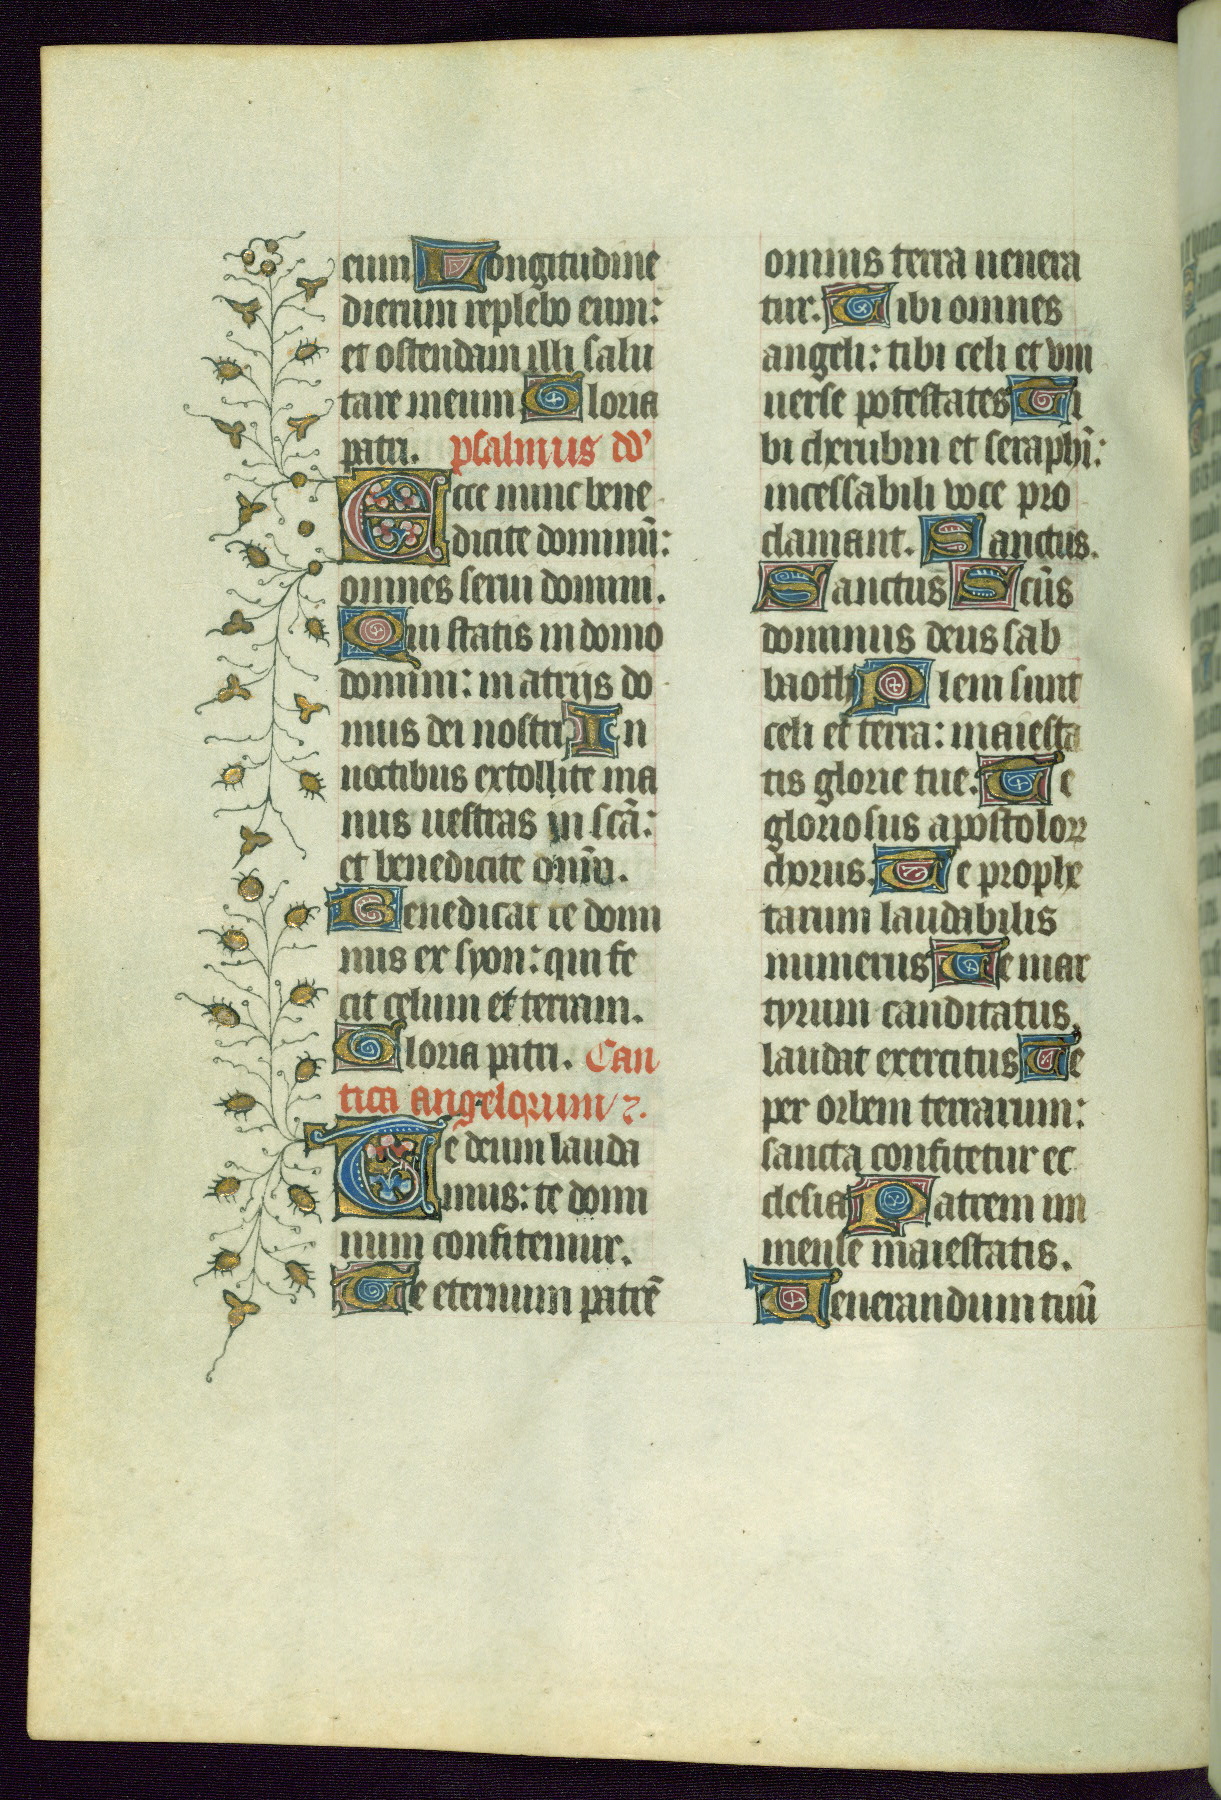 eum Longitudine
dierum replebo eum:
et ostendam illi salu
tare meum Gloria
patri. psalmus dd'
Ecce nunc bene
dicite dominū:
omnes serui domini.
Qui statis in domo
domini: in atrijs do
mus dei nostri In
noctibus extollite ma
nus uestras in scā:
et benedicite dnm̄.
Benedicat te domi
nus ex syon: qui fe
cit celum et terram.
Gloria patri. Can
tica angelorum / ꝛ.
Te deum lauda
mus: te domi
num confitemur.
Te eternum patrē
omnis terra uenera
tur. Tibi omnes
angeli: tibi celi et vni
uerse potestates Ti
bi cherubin et seraphī:
incessabili voce pro
clamant. Sanctus.
Sanctus Scūs
dominus deus sab
baoth Pleni sunt
celi et terra: maiesta
tis glorie tue. Te
gloriosus apostoloꝝ
chorus. Te prophe
tarum laudabilis
numerus Te mar
tyrum canditatus
laudat exercitus Te
per orbem terrarum:
sancta confitetur ec
clesia Patrem im
mense maiestatis.
Uenerandum tuū